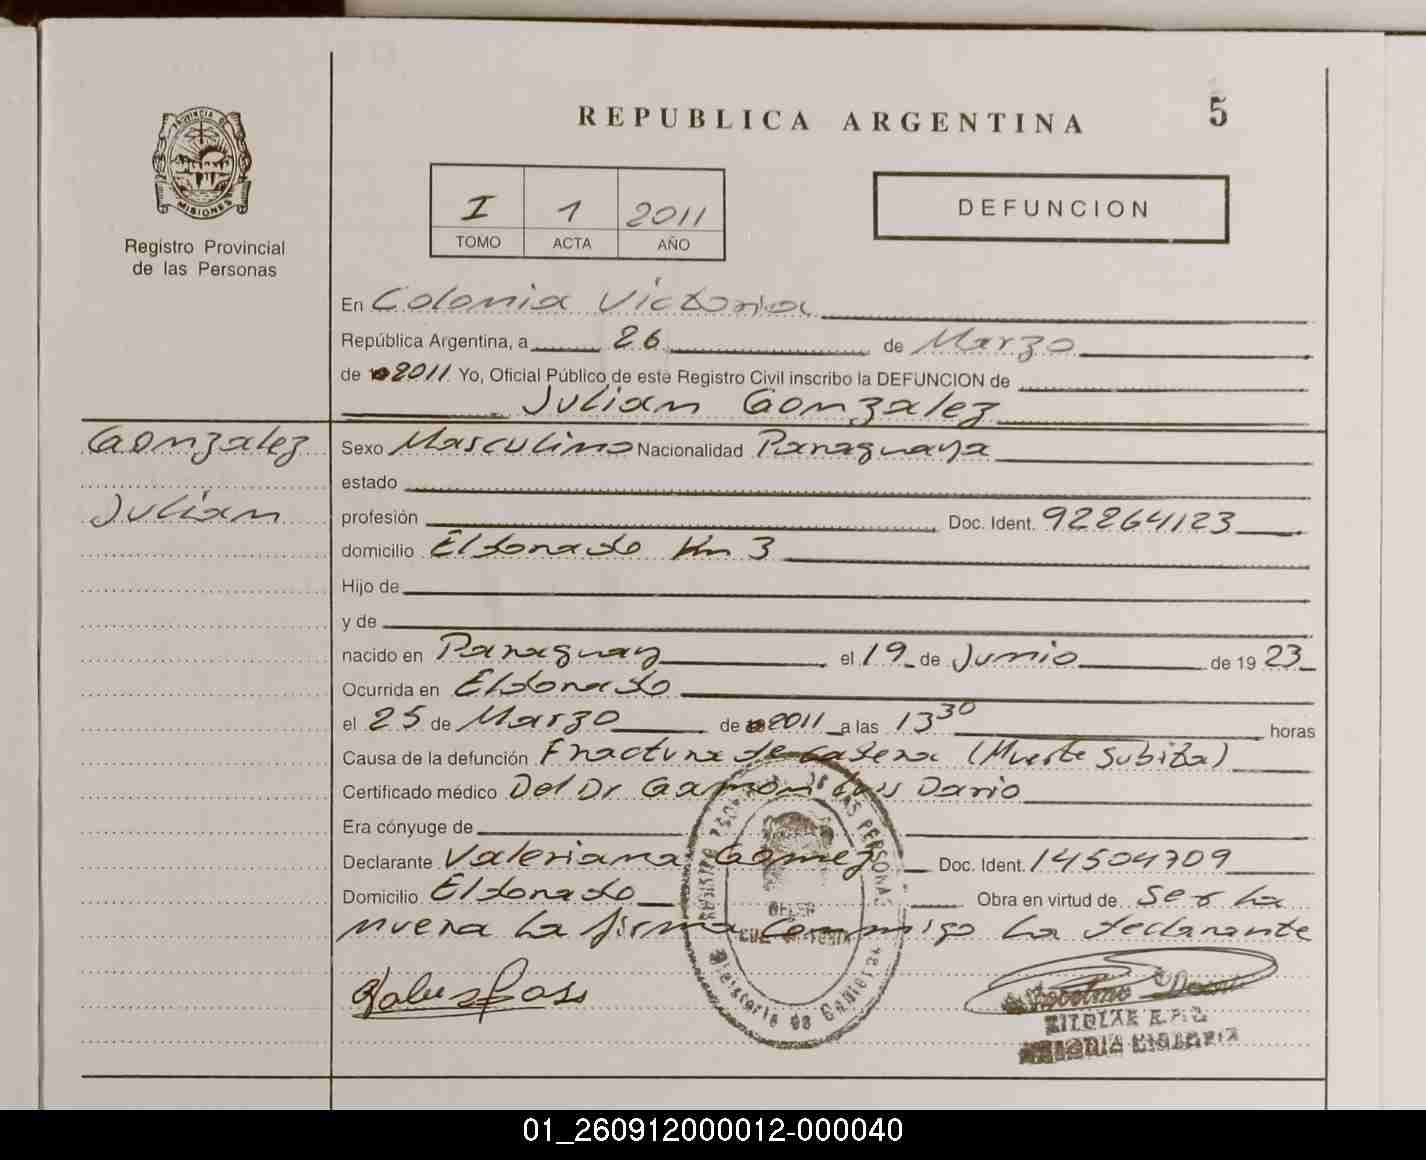 REPUBLICA ARGENTINA
5
PROVINCIA DE
MISIONES
Registro Provincial
de las Personas
I 1 2011
TOMO ACTA AÑO
DEFUNCION
En Colonia Victoria
República Argentina, a 26 de Marzo
de 2011 Yo, Oficial Público de este Registro Civil inscribo la DEFUNCION de
Julian Gonzalez
Gonzalez
Julian
Sexo Masculino Nacionalidad Paraguaya
estado
profesión Doc. Ident. 92264123
domicilio Eldorado Km 3
Hijo de
y de
nacido en Paraguay el 19 de Junio de 1923
Ocurrida en Eldorado
el 25 de Marzo de 2011 a las 13 30 horas
Causa de la defunción Fractura de cadera (Muerte Subita)
Certificado médico Del Dr Luis Dario
Era cónyuge de
Declarante Valeriana Gomez Doc. Ident. 14504709
Domicilio Eldorado Obra en virtud de Ser La
nuera La firma Conmigo La declarante
DE LAS PERSONAS
Ministerio de Gobierno
TITULAR
01_260912000012-000040